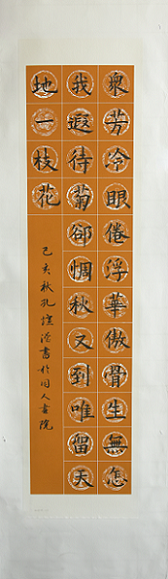 衆芳冷眼倦浮華傲骨生無怎
我遐待菊卻惆秋又到唯留天
地一枝花
己亥秋孔書於同人書院